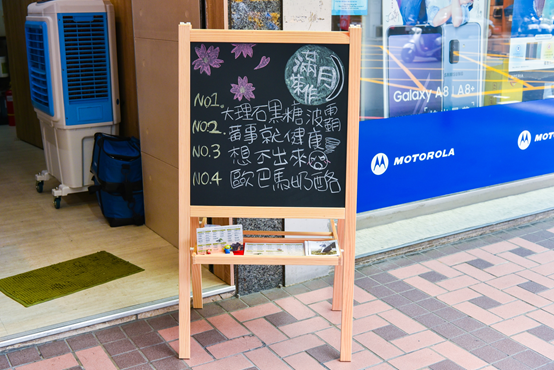 滿月
NO1. 大理石黑糖波霸
NO2. 萬事就健康
NO.3 想不出來
NO.4 歐巴馬奶酪
Galaxy A8, A8+
MOTOROLA